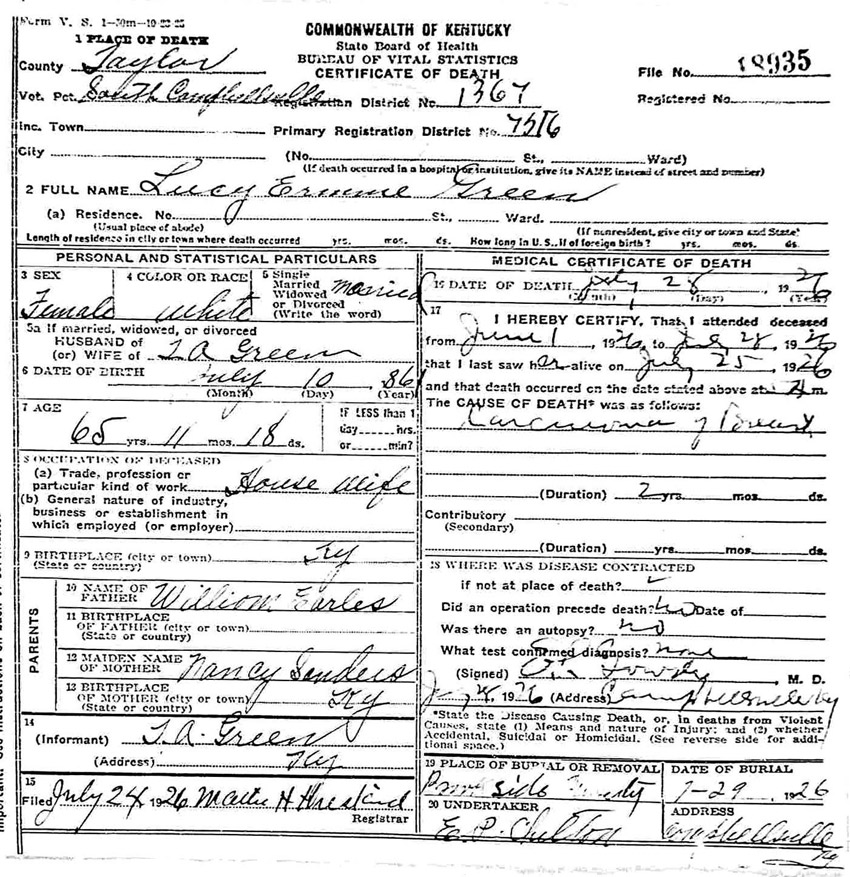 Form V. S. 1-50m-10-23-25
COMMONWEALTH OF KENTUCKY
State Board of Health
BUREAU OF VITAL STATISTICS
CERTIFICATE OF DEATH
1 PLACE OF DEATH
County Taylor
File No. 18935
Vot. Pct. South Campbellsville Registration District No. 1367
Registered No.
Inc. Town Primary Registration District No. 7516
City (No. St., Ward)
(If death occurred in a hospital or institution, give its NAME instead of street and number)
2 FULL NAME Lucy Green
(a) Residence. No. St., Ward.
(Usual place of abode) (If nonresident, give city or town and State)
Length of residence in city or town where death occurred yrs. mos. ds. How long in U.S., if of foreign birth? yrs. mos. ds.
PERSONAL AND STATISTICAL PARTICULARS
3 SEX 4 COLOR OR RACE 5 Single Married Widowed or Divorced (Write the word)
Female White Married
5a If married, widowed, or divorced
HUSBAND of
(or) WIFE of T. A. Green
6 DATE OF BIRTH July 10, 86
(Month) (Day) (Year)
7 AGE IF LESS than 1
day hrs.
65 yrs. 11 mos. 18 ds. or min?
8 OCCUPATION OF DECEASED
(a) Trade, profession or
particular kind of work House Wife
(b) General nature of industry,
business or establishment in
which employed (or employer)
9 BIRTHPLACE (city or town) Ky
(State or country)
PARENTS
10 NAME OF FATHER William Earles
11 BIRTHPLACE
OF FATHER (city or town)
(State or country)
12 MAIDEN NAME OF MOTHER Nancy Sanders
13 BIRTHPLACE
OF MOTHER (city or town) Ky
(State or country)
14
(Informant) T. A. Green
(Address) Ky
15
Filed July 24 1926 Mattie H
Registrar
MEDICAL CERTIFICATE OF DEATH
16 DATE OF DEATH July 28, 1926
(Month) (Day) (Year)
17
I HEREBY CERTIFY, That I attended deceased
from June 1, 1926, to July 28, 1926
that I last saw her alive on July 25, 1926
and that death occurred on the date stated above at m.
The CAUSE OF DEATH* was as follows:
Carcinoma of Breast
(Duration) 2 yrs. mos. ds.
Contributory
(Secondary)
(Duration) yrs. mos. ds.
18 WHERE WAS DISEASE CONTRACTED
if not at place of death?
Did an operation precede death? No Date of
Was there an autopsy? No
What test confirmed diagnosis? None
(Signed) Gowdy, M. D.
, 1926 (Address) Campbellsville Ky
*State the Disease Causing Death, or, in deaths from Violent
Causes, state (1) Means and nature of Injury; and (2) whether
Accidental, Suicidal or Homicidal. (See reverse side for addi-
tional space.)
19 PLACE OF BURIAL OR REMOVAL DATE OF BURIAL
side 7-29, 1926
20 UNDERTAKER ADDRESS
E. P. Chelton Campbellsville
Ky